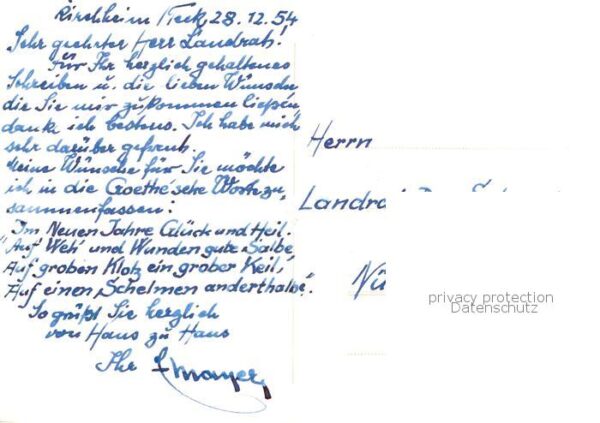 Kirchheim Teck, 28.12.54
Sehr geehrter Herr Landrat!
Für Ihr herzlich gehaltenes
Schreiben u. die lieben Wünsche
die Sie mir zukommen ließen,
danke ich bestens. Ich habe mich
sehr darüber gefreut.
Meine Wünsche für Sie möchte
ich in die Goethe'sche Worte zu,
sammenfassen:
Im Neuen Jahre Glück und Heil.
"Auf Weh' und Wunden gute Salbe,
Auf groben Klotz ein grober Keil,
Auf einen Schelmen anderthalbe".
So grüßt Sie herzlich
von Haus zu Haus
Ihr Mayer,
Herrn
Landra
Nü
privacy protection
Datenschutz